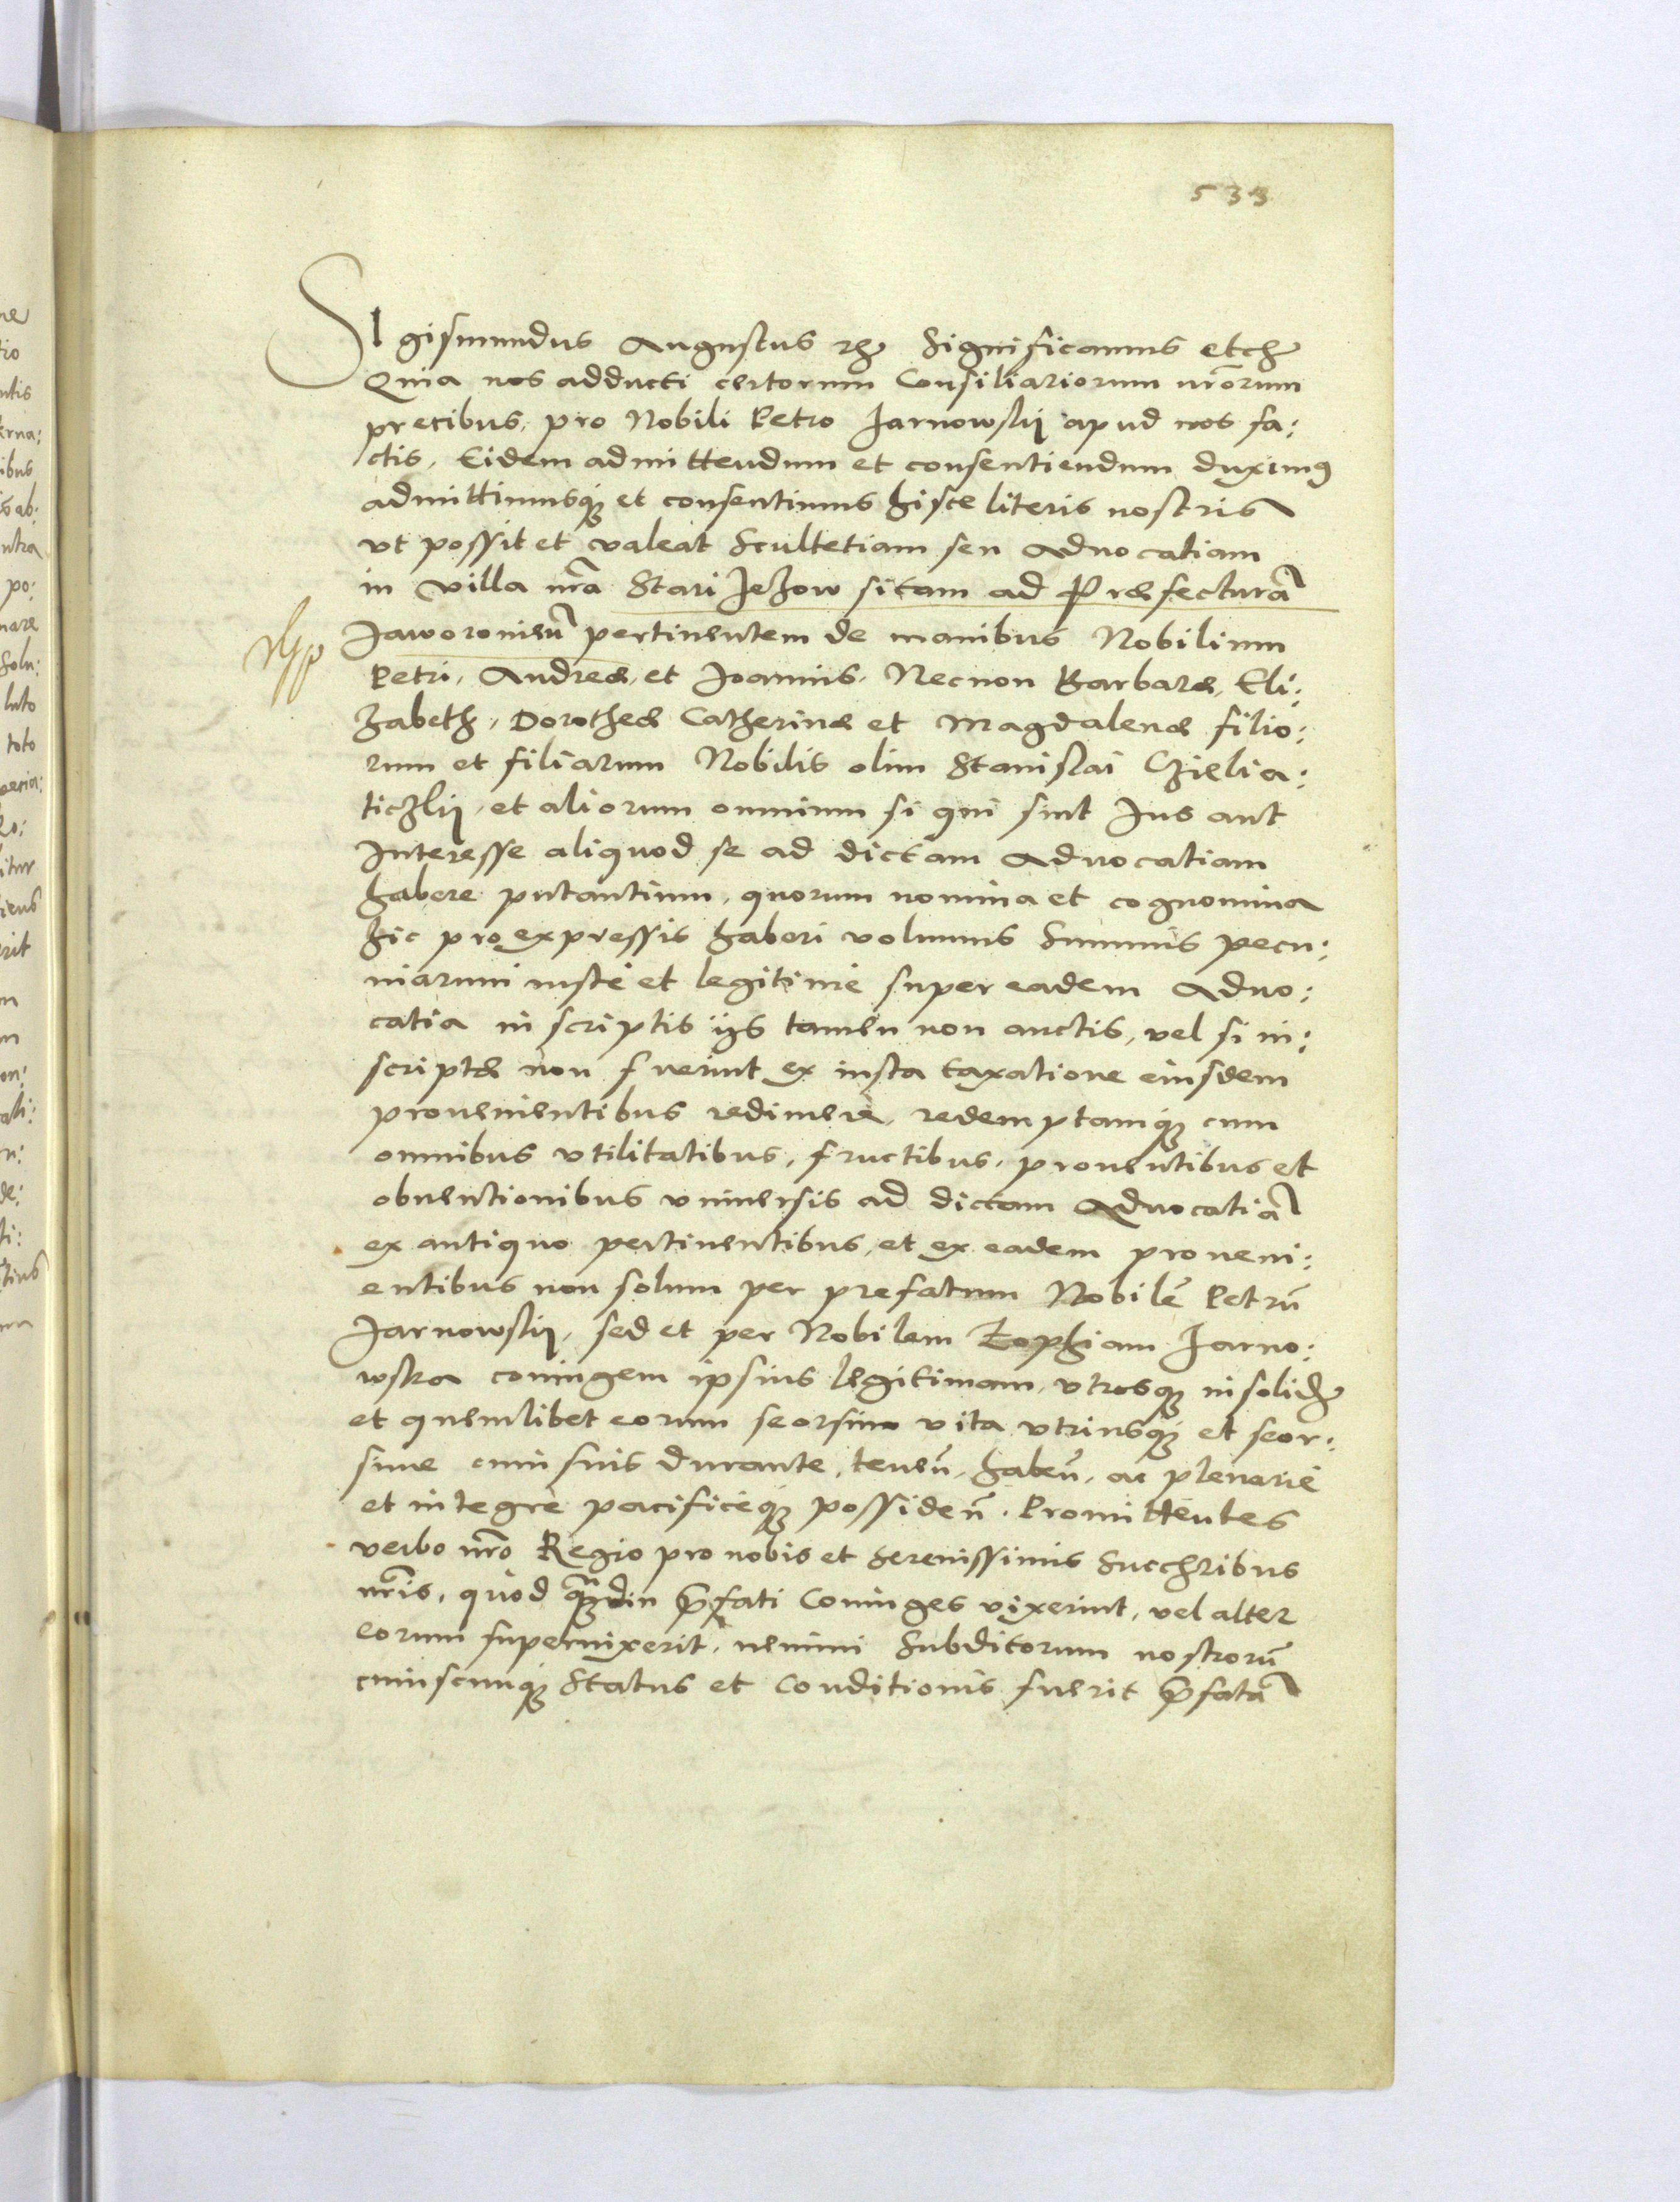 533
SIgismundus Augustus rex Significamus etc
Quia nos adducti certorum Consiliariorum nrorum
precibus, pro Nobili Petro Jarnowskij apud nos fa:
ctis, Eidem admittendum et consentiendum duximus
admittimusque et consentimus hisce literis nostris
ut possit et valeat Scultetiam seu Aduocatiam
in villa nra Stari Jezow sitam ad Præfecturam
Jaworonien pertinentem de manibus Nobilium
Petri, Andreæ, et Joannis, Necnon Barbaræ, Eli:
zabeth, Dorotheæ Catherinæ et Magdalenæ filio:
rum et filiarum Nobilis olim Stanislai Czielia:
ticzkij, et aliorum omnium si qui sint Jus aut
Interesse aliquod se ad dictam Aduocatiam
habere putantium, quorum nomina et cognomina
hic pro expressis haberi volumus Summis pecu:
niarum iustè et legitimè super eadem Aduo:
catia inscriptis ijs tamen non auctis, vel si in:
scriptæ non fuerint ex iusta taxatione eiusdem
prouenientibus redimere, redemptamque cum
omnibus vtilitatibus, fructibus, prouentibus et
obuentionibus vniuersis ad dictam Aduocatiam
ex antiquo pertinentibus, et ex eadem proveni:
entibus non solum per prefatum Nobilem Petrum
Jarnowskij, sed et per Nobilem Zophiam Jarno:
wska coniugem ipsius legitimam, vtrosque insolidum
et quemlibet eorum seorsim vita vtriusque et seor:
sime cuiusuis durante, tenen, haben, ac plenariè
et integrè pacificèque possiden. Promittentes
verbo nro Regio pro nobis et Serenissimis Succribus
nris, quod quandiu prefati Coniuges vixerint, vel alter
eorum superuixerit, nemini Subditorum nostrorum
cuiuscunque Status et Conditionis fuerit prefatam